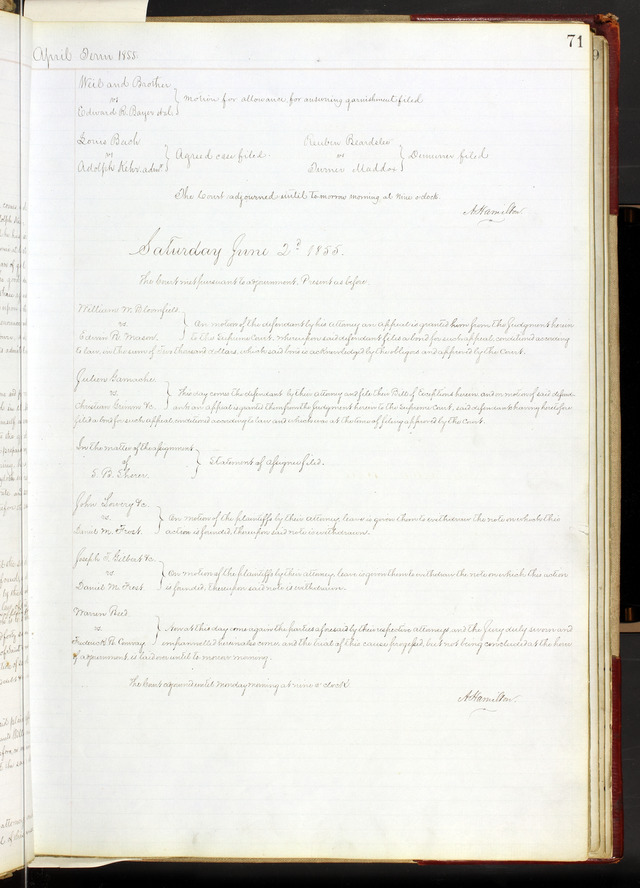 71
April Term 1855
Weil and Brother
vs
Edward R. Bayer et al.
} Motion for allowance for answering garnishment filed
Louis Bach
vs
Adolph Kehr adm.
} Agreed case filed.
Reuben Beardslee
vs
Turner Maddox
} Demurrer filed
The Court adjourned until tomorrow morning at nine o'clock.
A Hamilton
Saturday June 2d 1855.
The Court met pursuant to adjournment. Present as before.
William M. Bloomfield
vs.
Edwin R. Mason.
} On motion of the defendant by his attorney an appeal is granted him from the Judgment herein
to the Supreme Court, whereupon said defendant files a bond for such appeal, conditioned according
to law, in the sum of Two thousand dollars, which said bond is acknowledged by the obligors and approved by the Court.
Julien Garnache
vs.
Christian Grimm &c.
} This day comes the defendant by their attorney and file their Bill of Exceptions herein and on motion of said defend-
-ants an appeal is granted them from the Judgment herein to the Supreme Court, said defendants having heretofore
filed a bond for such appeal conditioned according to law and which was at the time of filing approved by the Court.
In the matter of the assignment
of
S. B. Shorer.
} Statement of Assignee filed.
John Lowery &c.
vs.
Daniel M. Frost.
} On motion of the plaintiffs by their attorney, leave is given them to withdraw the note on which this
action is founded, thereupon said note is withdrawn.
Joseph T. Gilbert &c.
vs.
Daniel M. Frost
} On motion of the plaintiffs by their attorney, leave is given them to withdraw the note on which this action
is founded, thereupon said note is withdrawn.
Warren Reed.
vs.
Frederick B. Conway.
} Now at this day come again the parties aforesaid by their respective attorneys and the Jury duly sworn and
empannelled herein also comes and the trial of this cause progressed, but not being concluded at the hour
of adjournment is laid over until to morrow morning.
The Court adjourned until Monday morning at nine o'clock.
A Hamilton